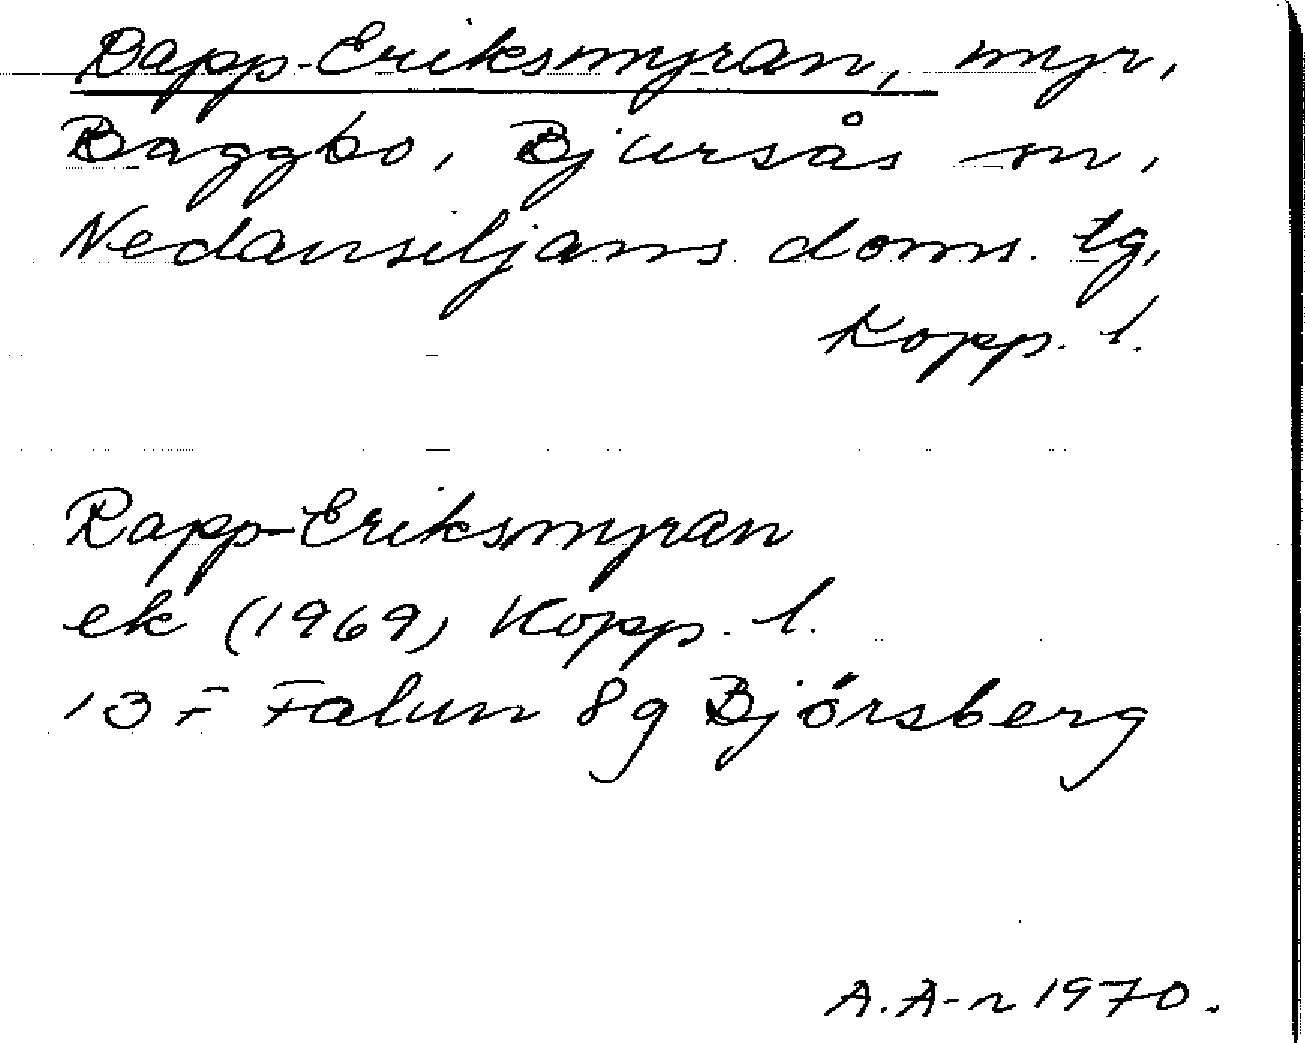 Rapp-Eriksmyran, myr,
Baggbo, Bjursås sn,
Nedansiljans doms. tg,
Kopp. l.
Rapp-Eriksmyran
ek (1969) Kopp. l.
13 F Falun 8g Björsberg
A.A-n 1970.